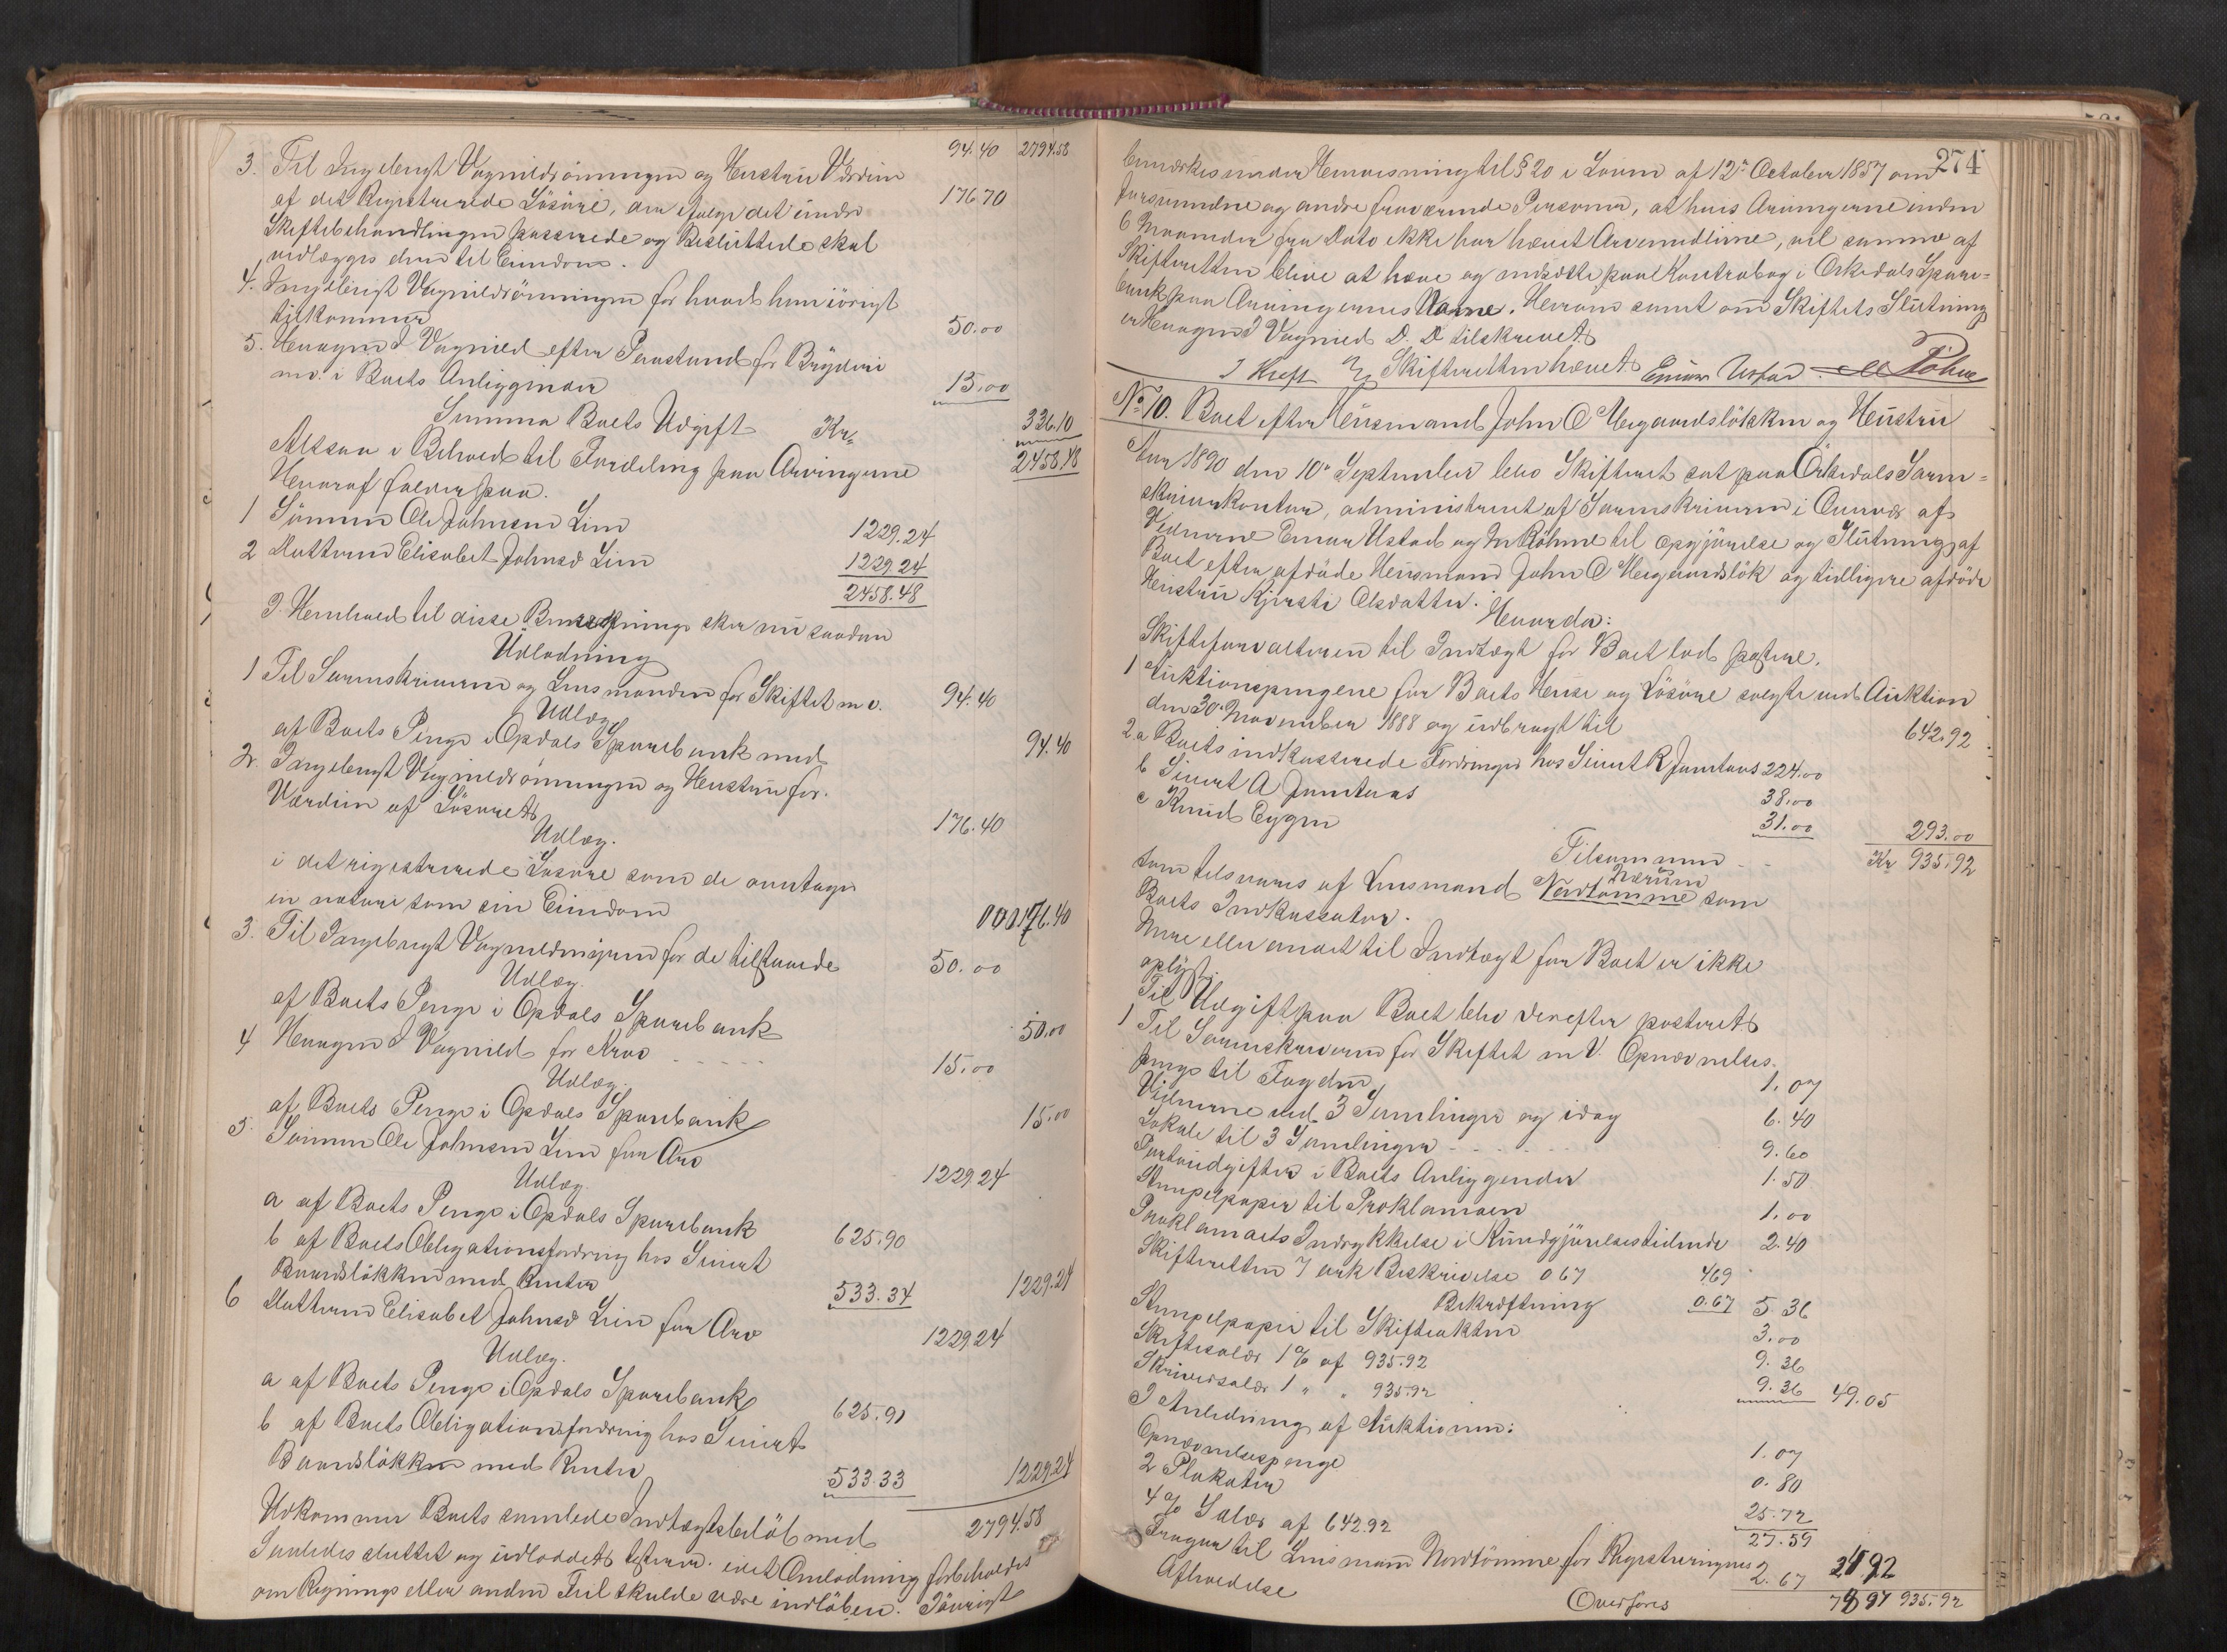 94.40 2794.58
3. Til Ingebrigt Vognildsrönningen og Hustru Værdien
af det Registrerede Lösöre, der ifølge det under 176.70
Skiftebehandlingen passerede og Besluttede skal
udlægges dem til Eiendom.
4. Ingebrigt Vognildsrönningen for hvad ham iövrigt
tilkommer 50.00
5. Haagen I Vognild efter Paastand for Bryderi
m.v. i Boets Anliggender 15.00
Summa Boets Udgift Kr. 336.10
Altsaa i Behold til Fordeling paa Arvingerne 2458.48
Heraf falder paa.
1 Sönnen Ole Johnsen Lien 1229.24
2 Datteren Elisabet Johnsd Lien 1229.24
2458.48
I Henhold til disse Beregninger sker nu saadan
Udlodning
1 Til Sorenskriveren og Lensmanden for Skiftet m v. 94.40
Udlæg
af Boets Penge i Opdals Sparebank med 94.40
2. Ingebrigt Vognildsrönningen og Hustru for
Værdien af Lösöret 176.40
Udlæg.
i det registrerede Lösöre som de antager
in natura som sin Eiendom 176.40
3. Til Ingebrigt Vognildsrönningen for de tilstaaede 50.00
Udlæg.
af Boets Penge i Opdals Sparebank 50.00
4 Haagen I Vognild for Krav 15.00
Udlæg.
af Boets Penge i Opdals Sparebank 15.00
5. Sönnen Ole Johnsen Lien for Arv 1229.24
Udlæg.
a af Boets Penge i Opdals Sparebank 625.90
b af Boets Obligationsfordring hos Sivert
Baardslökken med Renter 533.34 1229.24
6 Datteren Elisabet Johnsd Lien for Arv 1229.24
Udlæg.
a af Boets Penge i Opdals Sparebank 625.91
b af Boets Obligationsfordring hos Sivert
Baardslökken med Renter 533.33 1229.24
Udkommer Boets samlede Indtægtsbelöb med 2794.58
Saaledes sluttet og udloddet testeres. idet Omlodning forbeholdes
om Regnings eller anden Feil skulde være indlöben. Iövrigt
274
bemærkes under Henvisning til § 20 i Loven af 12te October 1857 om
forsvundne og andre fraværende Personer, at hvis Arvingerne inden
6 Maaneder fra Dato ikke har hævet Arvemidlerne, vil samme af
Skifteretten blive at hæve og indsætte paa Kontrabog i Orkedals Spare=
bank paa Arvingernes Navne. Herom samt om Skiftets Slutning
er Haagen I Vognild D. D. tilskrevet
Skifteretten hævet. Einar Ustad M Röhne
No 10. Boet efter Husmand John O Haugaardslökken og Hustru
Aar 1890 den 10de September blev Skifteret sat paa Orkedals Soren=
skriverkontor, administreret af Sorenskriveren i Overvær af
Vidnerne Einar Ustad og M Röhne til Opgjörelse og Slutning af
Boet efter afdöde Husmand John O Haugaardslök og tidligere afdöde
Hustru Kjersti Olsdatter.
Hvorda:
Skifteforvalteren til Indtægt for Boet lod postere.
1 Auktionspengene for Boets Huse og Lösöre solgte ved Auktion
den 30te November 1888 og udbragt til 642.92
2 a Boets indkasserede Fordringer hos Sivert R Jamtaas 224.00
b Sivert A Jamtaas 38.00
c Knud Eggen 31.00 293.00
Tilsammen Kr 935.92
som tilsvares af Lensmand Nerum Nordtömme som
Boets Indkassator.
Mere eller andet til Indtægt for Boet er ikke
oplyst.
Til Udgift paa Boet blev derefter posteret
1 Til Sorenskriveren for Skiftet m V. Opnævnelses-
penge til Fogden 1.07
Vidnerne ved 3 Samlinger og idag 6.40
Lokale til 3 Samlinger 9.60
Portoudgifter i Boets Anliggender 1.50
Stempelpapir til Proklamaen 1.00
Proklamaets Indrykkelse i Kundgjörelsestidende 2.40
Skifteretten 7 ark Beskrivelse 0 67 4.69
Bekræftning 0.67 5.36
Stempelpapir til Skifteakten 3.00
Skiftesalær 1% af 935.92 9.36
Skriversalær 1 " " 935.92 9.36 49.05
I Anledning af Auktionen:
Opnævnelsespenge 1.07
2 Plakater 0.80
4% Salær af 642.92 25.72
27.59
Fragaar til Lensmann Nordtömme for Registreringens
Afholdelse 2.67 24.92
Overföres 73 97 935.92